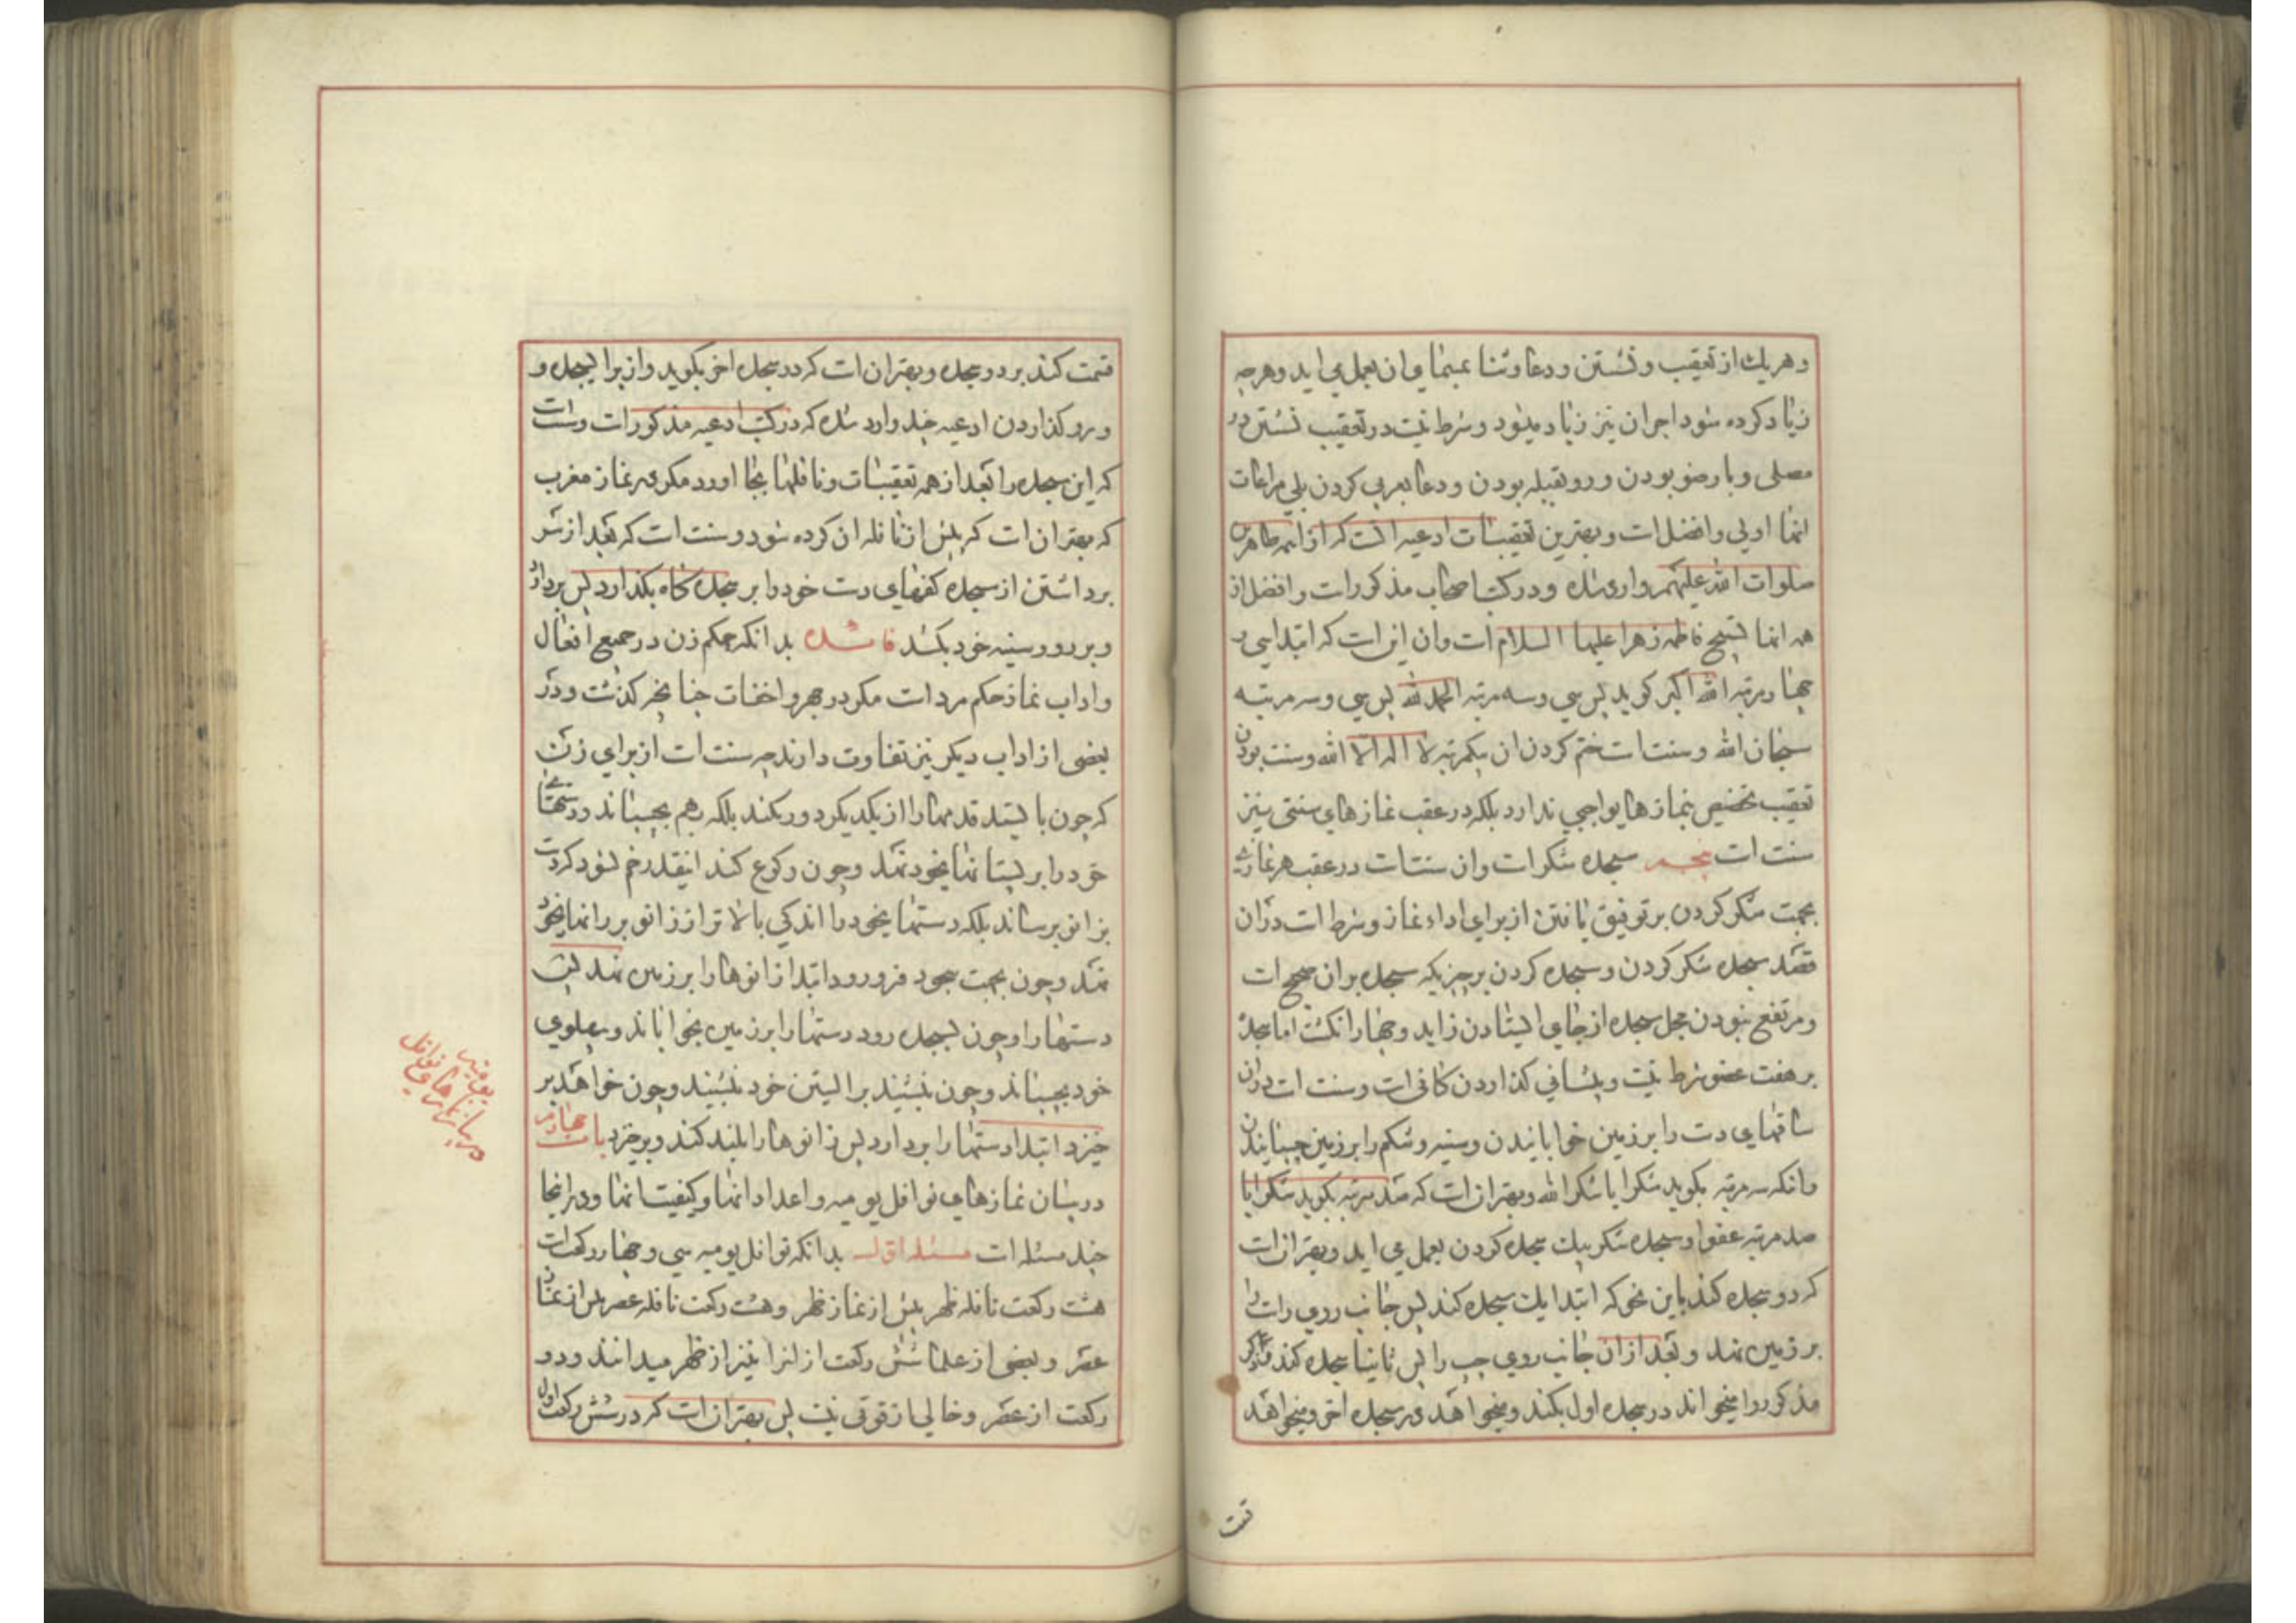 وهریك از تعقیب و نشستن ودعا وثنا عمل می اید وهرچه
زیاد کرده شود اجران نیز زیاد میشود وشرط نیت در تعقیب نشستن در
مصلی وبا وضو بودن ورو بقبله بودن ودعا بعربی کردن بلی مراعات
انها اولی وافضل ات وبهترین تعقیبات ادعیه الت که از ائمه طاهرین
صلوات الله علیهم وارد شده ودرکتب اصحاب مذکورات وافضل از
همه انها تسبیح فاطمه زهرا علیها السلام ات وان این ات که ابتدا سی و
چهار مرتبه الله اکبر کوید پس سی وسه مرتبه الحمد لله پس سی وسه مرتبه
سبحان الله وسنت ات ختم کردن ان بیکمرتبه لا اله الا الله وسنت بودن
تعقیب تخصیص بنمازهای واجبی ندارد بلکه در عقب نمازهای سنتی نیز
سنت ات پنجم سجده شکرات وان سنت ات در عقب هر نمازی
بجهت شکر کردن بر توفیق یافتن از برای اداء نماز وشرط ات دران
قصد سجده شکر کردن وسجده کردن بر چیزیکه سجده بران صحیح ات
ومرتفع نبودن محل سجده از جای ایستادن زاید وچهار انکشت اما سجده
بر هفت عضو شرط نیت وپیشانی کذاردن کافی ات وسنت ات دران
ساقهای دت را بر زمین خوابانیدن وسینه وشکم را بر زمین چسبانیدن
وانکه سه مرتبه بکوید شکرا یا شکرا لله وبهتر ان ات که صد مرتبه بکوید شکرا یا
صد مرتبه عفوا وسجده شکر بیك سجده کردن بعمل می اید وبهتر ان ات
که دو سجده کند باین نحو که ابتدا یك سجده کند پس جانب روی رات را
بر زمین نهد وبعد ازان جانب روی چپ را پس ثانیا سجده کند
مذکور را میخواند در سجده اول بکند ومیخواهد در سجده اخر ومیخواهد
قمت
قمت کند بر دو سجده وبهتر ان ات که در سجده اخر بکوید واز برا سجده و
ورو کذاردن ادعیه چند وارد شده که در کتب ادعیه مذکورات وسنت ات
که این سجده را بعد از همه تعقیبات ونافلها بجا اورد مکر در نماز مغرب
که بهتر ان ات که پیش از نافله ان کرده شود وسنت ات که بعد از سر
برداشتن از سجده کفهای دت خود را بر سجده کاه بکذارد پس بردارد
وبر رو وسینه خود بکشد فائده بدانکه حکم زن در جمیع افعال
واداب نماز حکم مرد ات مکر در جهر واخفات چنانچه کذشت ودر
بعضی از اداب دیکر نیز تفاوت دارند چه سنت ات از برای زن
که چون بایستد قدمها را از یکدیکر دور نکند بلکه بهم بچسباند ودستهای
خود را بر پستانهای خود نهد وچون رکوع کند انقدر خم نشود که دت
بزانو برساند بلکه دستهای خود را اندکی بالاتر از زانو بر رانهای خود
نهد وچون بجهت سجود فرو رود ابتدا زانوها را بر زمین نهد پس
دستها را وچون بسجده رود دستها را بر زمین بخواباند وپهلوی
خود بچسباند وچون بنشیند بر الیتین خود بنشیند وچون خواهد بر
خیزد ابتدا دستها را بردارد پس زانوها را بلند کند وبرخیزد باب چهارم
در بیان نمازهای نوافل یومیه واعداد انها وکیفیت انها ودر اینجا
چند مسئله ات مسئله اول بدانکه نوافل یومیه سی وچهار رکعت ات
هشت رکعت نافله ظهر پیش از نماز ظهر وهشت رکعت نافله عصر پیش از نماز
عصر وبعضی از علما شش رکعت از انرا نیز از ظهر میدانند ودو
رکعت از عصر وخالی از قوتی نیت پس بهتر ان ات که در شش رکعت اول
در بیان نمازهای نوافل
یومیه